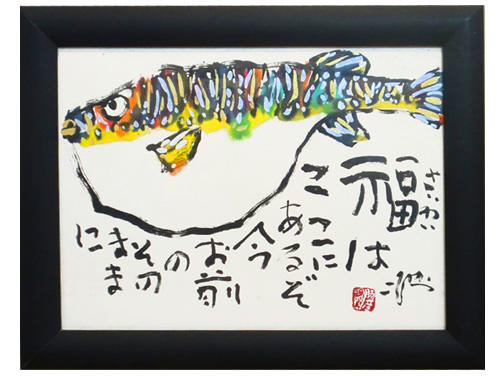 さいわい
福は
ここに
あるぞ
今
お前
の
その
まま
に